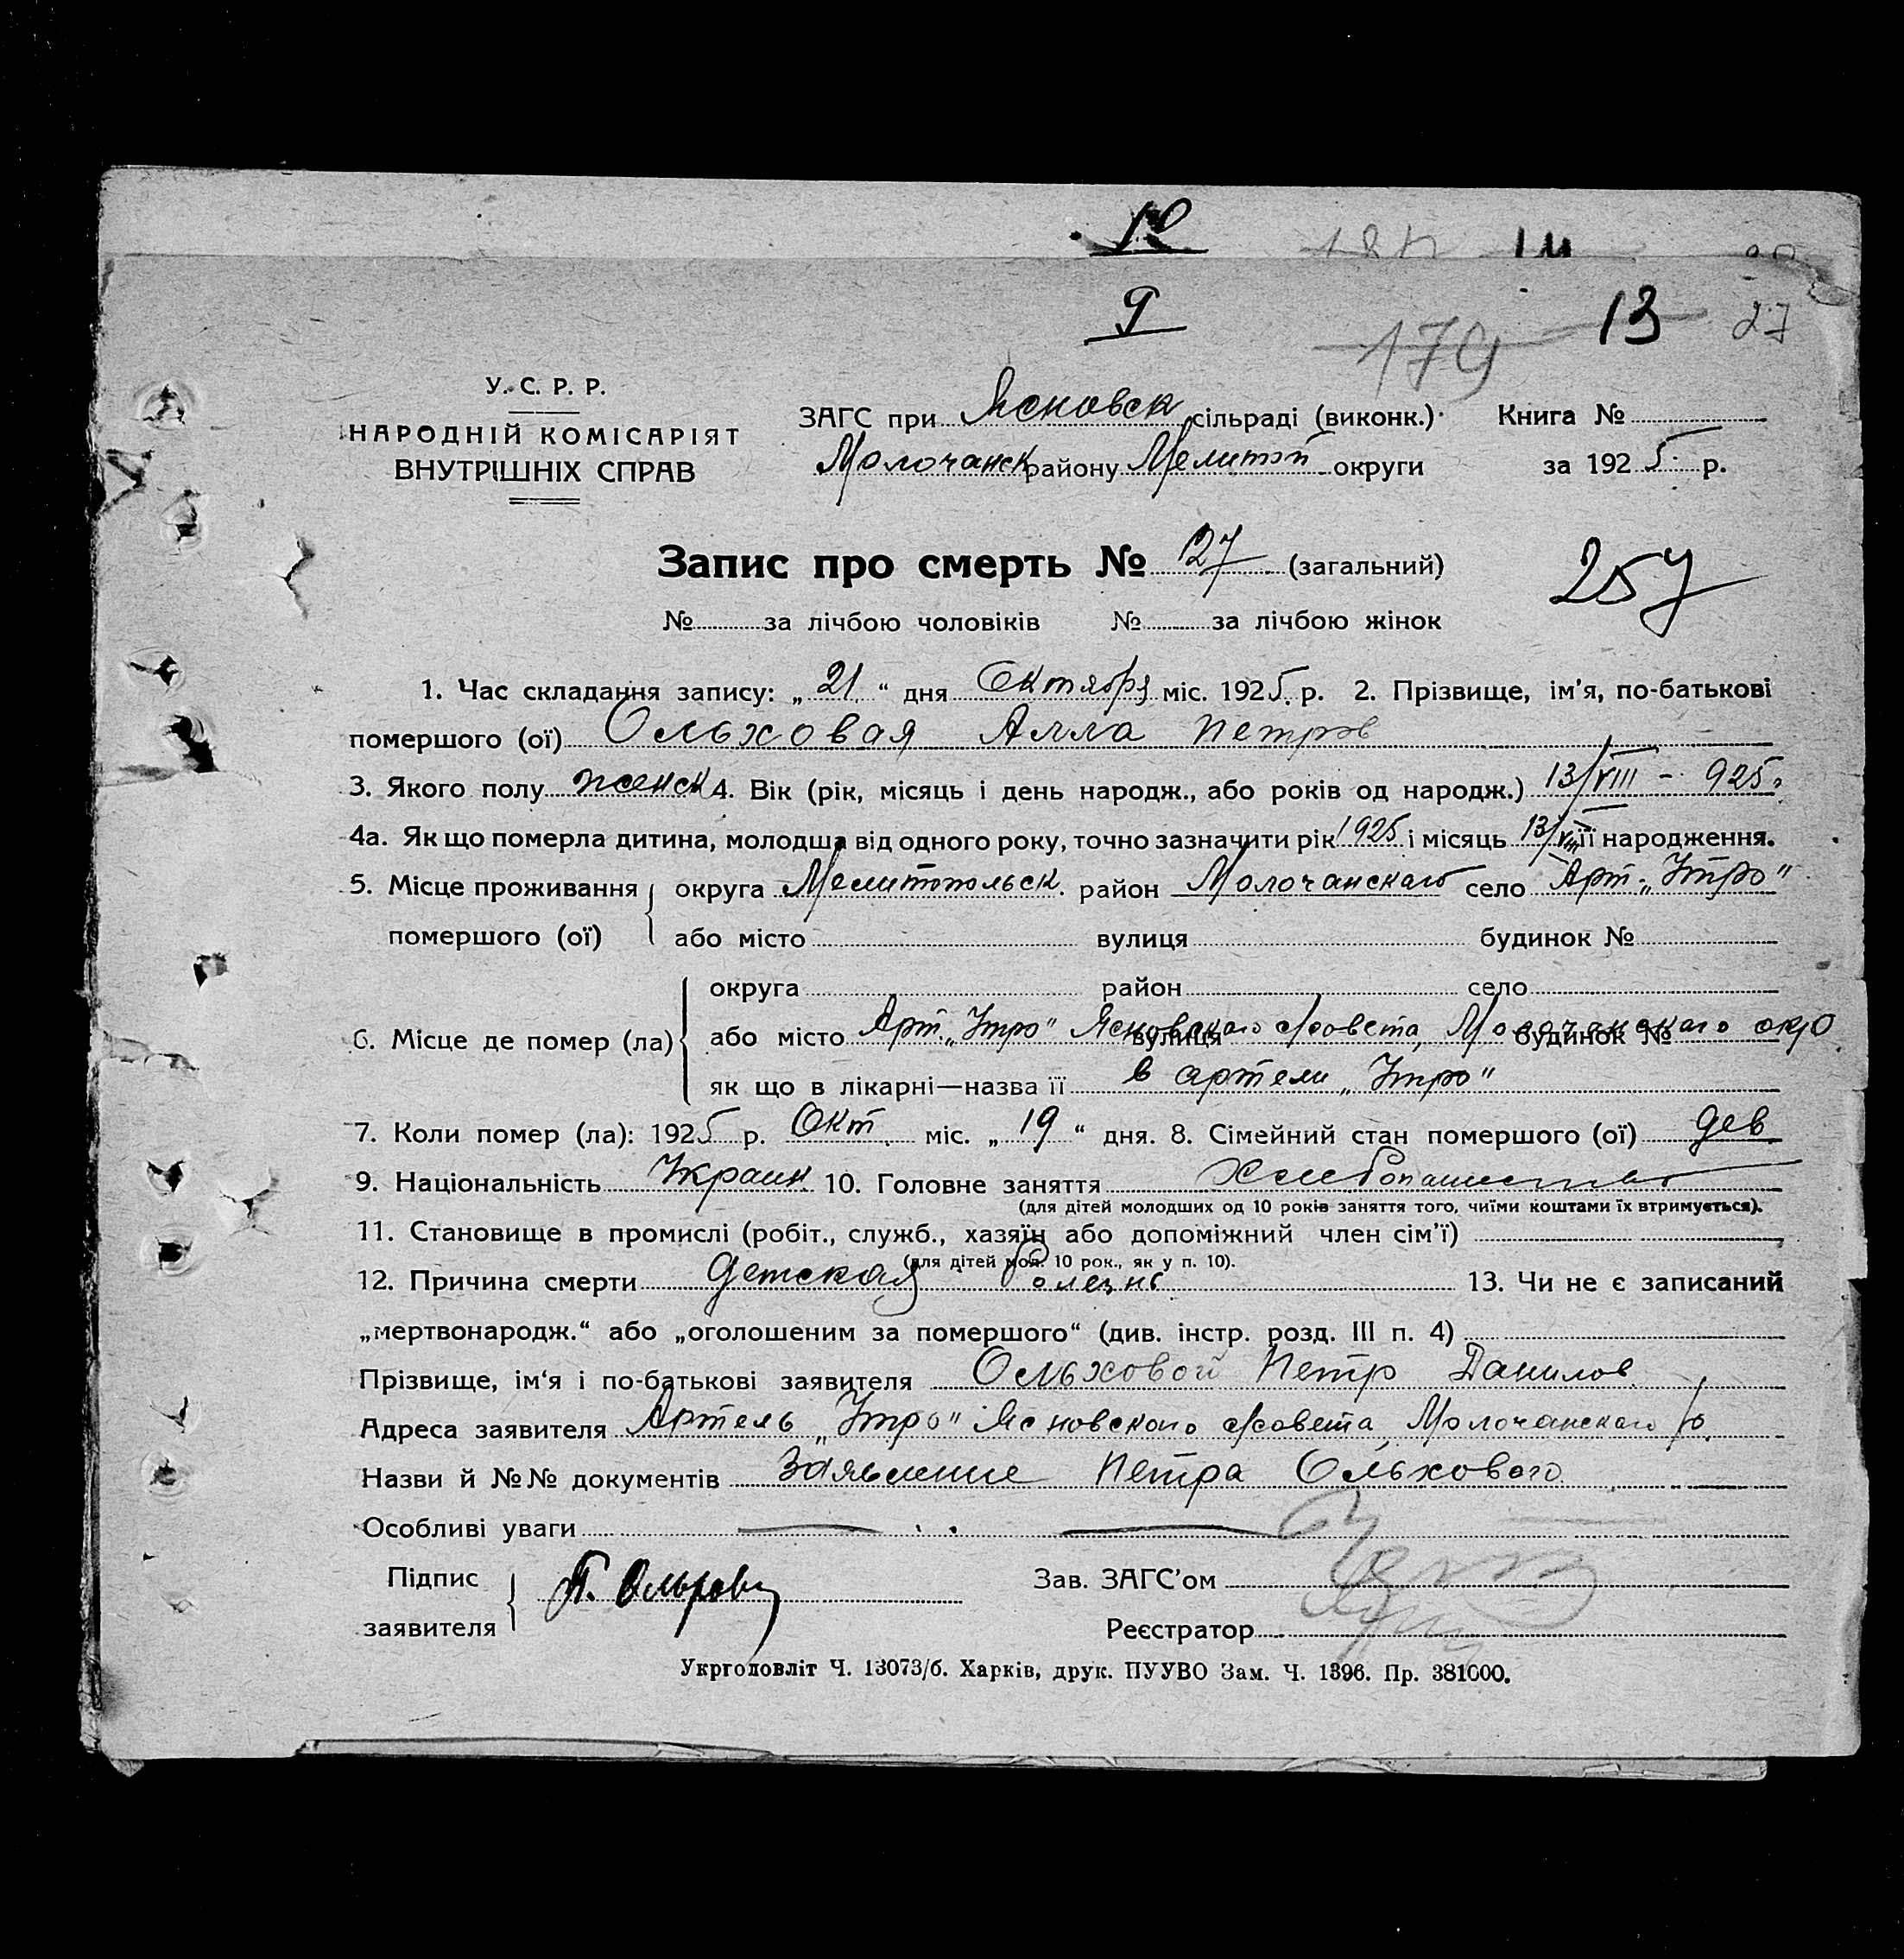 10
14
9
179 13 27
У. С. Р. Р.
НАРОДНІЙ КОМІСАРІЯТ
ВНУТРІШНІХ СПРАВ
ЗАГС при Ясновск сільраді (виконк.) Книга №
Молочанск району Мелитоп округи за 1925 р.
Запис про смерть № 27 (загальний)
257
№ за лічбою чоловіків № за лічбою жінок
1. Час складання запису: „21“ дня Октября міс. 1925 р. 2. Прізвище, ім'я, по-батькові
помершого (ої) Ольховая Алла Петров
3. Якого полу женск 4. Вік (рік, місяць і день народж., або років од народж.) 13/VIII – 925 г
4а. Як що померла дитина, молодша від одного року, точно зазначити рік 1925 і місяць 13/VIII її народження.
5. Місце проживання помершого (ої) округа Мелитопольск. район Молочанскаго село Арт. „Утро"
або місто вулиця будинок №
6. Місце де помер (ла) округа район село
або місто Арт. „Утро" Ясновского с/совета, Молочанского вулиця будинок №
як що в лікарні—назва її в артели „Утро"
7. Коли помер (ла): 1925 р. Окт. міс. „19“ дня. 8. Сімейний стан помершого (ої) дев.
9. Національність Украин 10. Головне заняття Хлебопашество
(для дітей молодших од 10 років заняття того, чиїми коштами їх втримується).
11. Становище в промислі (робіт., служб., хазяїн або допоміжний член сім'ї)
(для дітей мол. 10 рок., як у п. 10).
12. Причина смерти Детская болезнь 13. Чи не є записаний
„мертвонародж.“ або „оголошеним за помершого“ (див. інстр. розд. III п. 4)
Прізвище, ім'я і по-батькові заявителя Ольховой Петр Данилов.
Адреса заявителя Артель „Утро" Ясновского с/совета, Молочанского р.
Назви й №№ документів Заявление Петра Ольхового.
Особливі уваги
Підпис заявителя П. Ольховой Зав. ЗАГС'ом
Реєстратор
Укрголовліт Ч. 13073/б. Харків, друк. ПУУВО Зам. Ч. 1396. Пр. 381000.